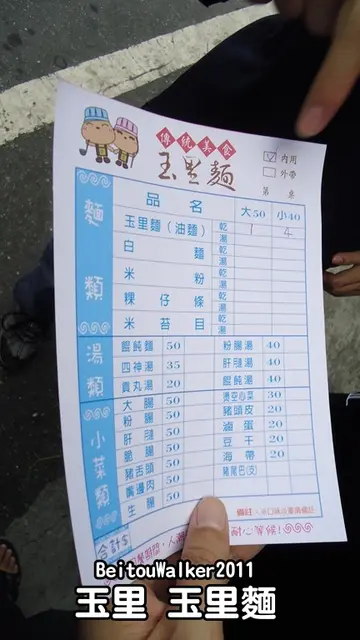 傳統美食
玉里麵
✓ 內用
外帶
第 桌
麵類
品名 大50 小40
玉里麵（油麵） 乾 湯 1 4
白麵 乾 湯
米粉 乾 湯
粿仔條 乾 湯
米苔目 乾 湯
湯類
餛飩麵 50 粉腸湯 40
四神湯 35 肝膶湯 40
貢丸湯 20 餛飩湯 40
小菜類
大腸 50 燙空心菜 30
粉腸 50 豬頭皮 20
肝膶 50 滷蛋 20
脆腸 50 豆干 20
豬舌頭 50 海帶 20
嘴邊肉 50 豬尾巴(支)
生腸 50
合計$
備註
BeitouWalker2011
玉里 玉里麵